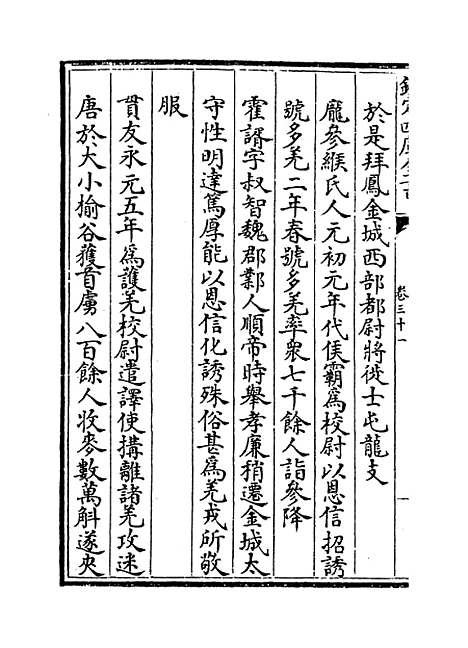 欽定四庫全書
卷三十一
於是拜鳳金城西部都尉將徙士屯龍支
龐參緱氏人元初元年代侯霸為校尉以恩信招誘
號多羌二年春號多羌率衆七千餘人詣參降
霍諝字叔智魏郡鄴人順帝時舉孝廉稍遷金城太
守性明達篤厚能以恩信化誘殊俗甚為羌戎所敬
服
貫友永元五年為護羌校尉遣譯使搆離諸羌攻迷
唐於大小榆谷獲首虜八百餘人收麥數萬斛遂夾